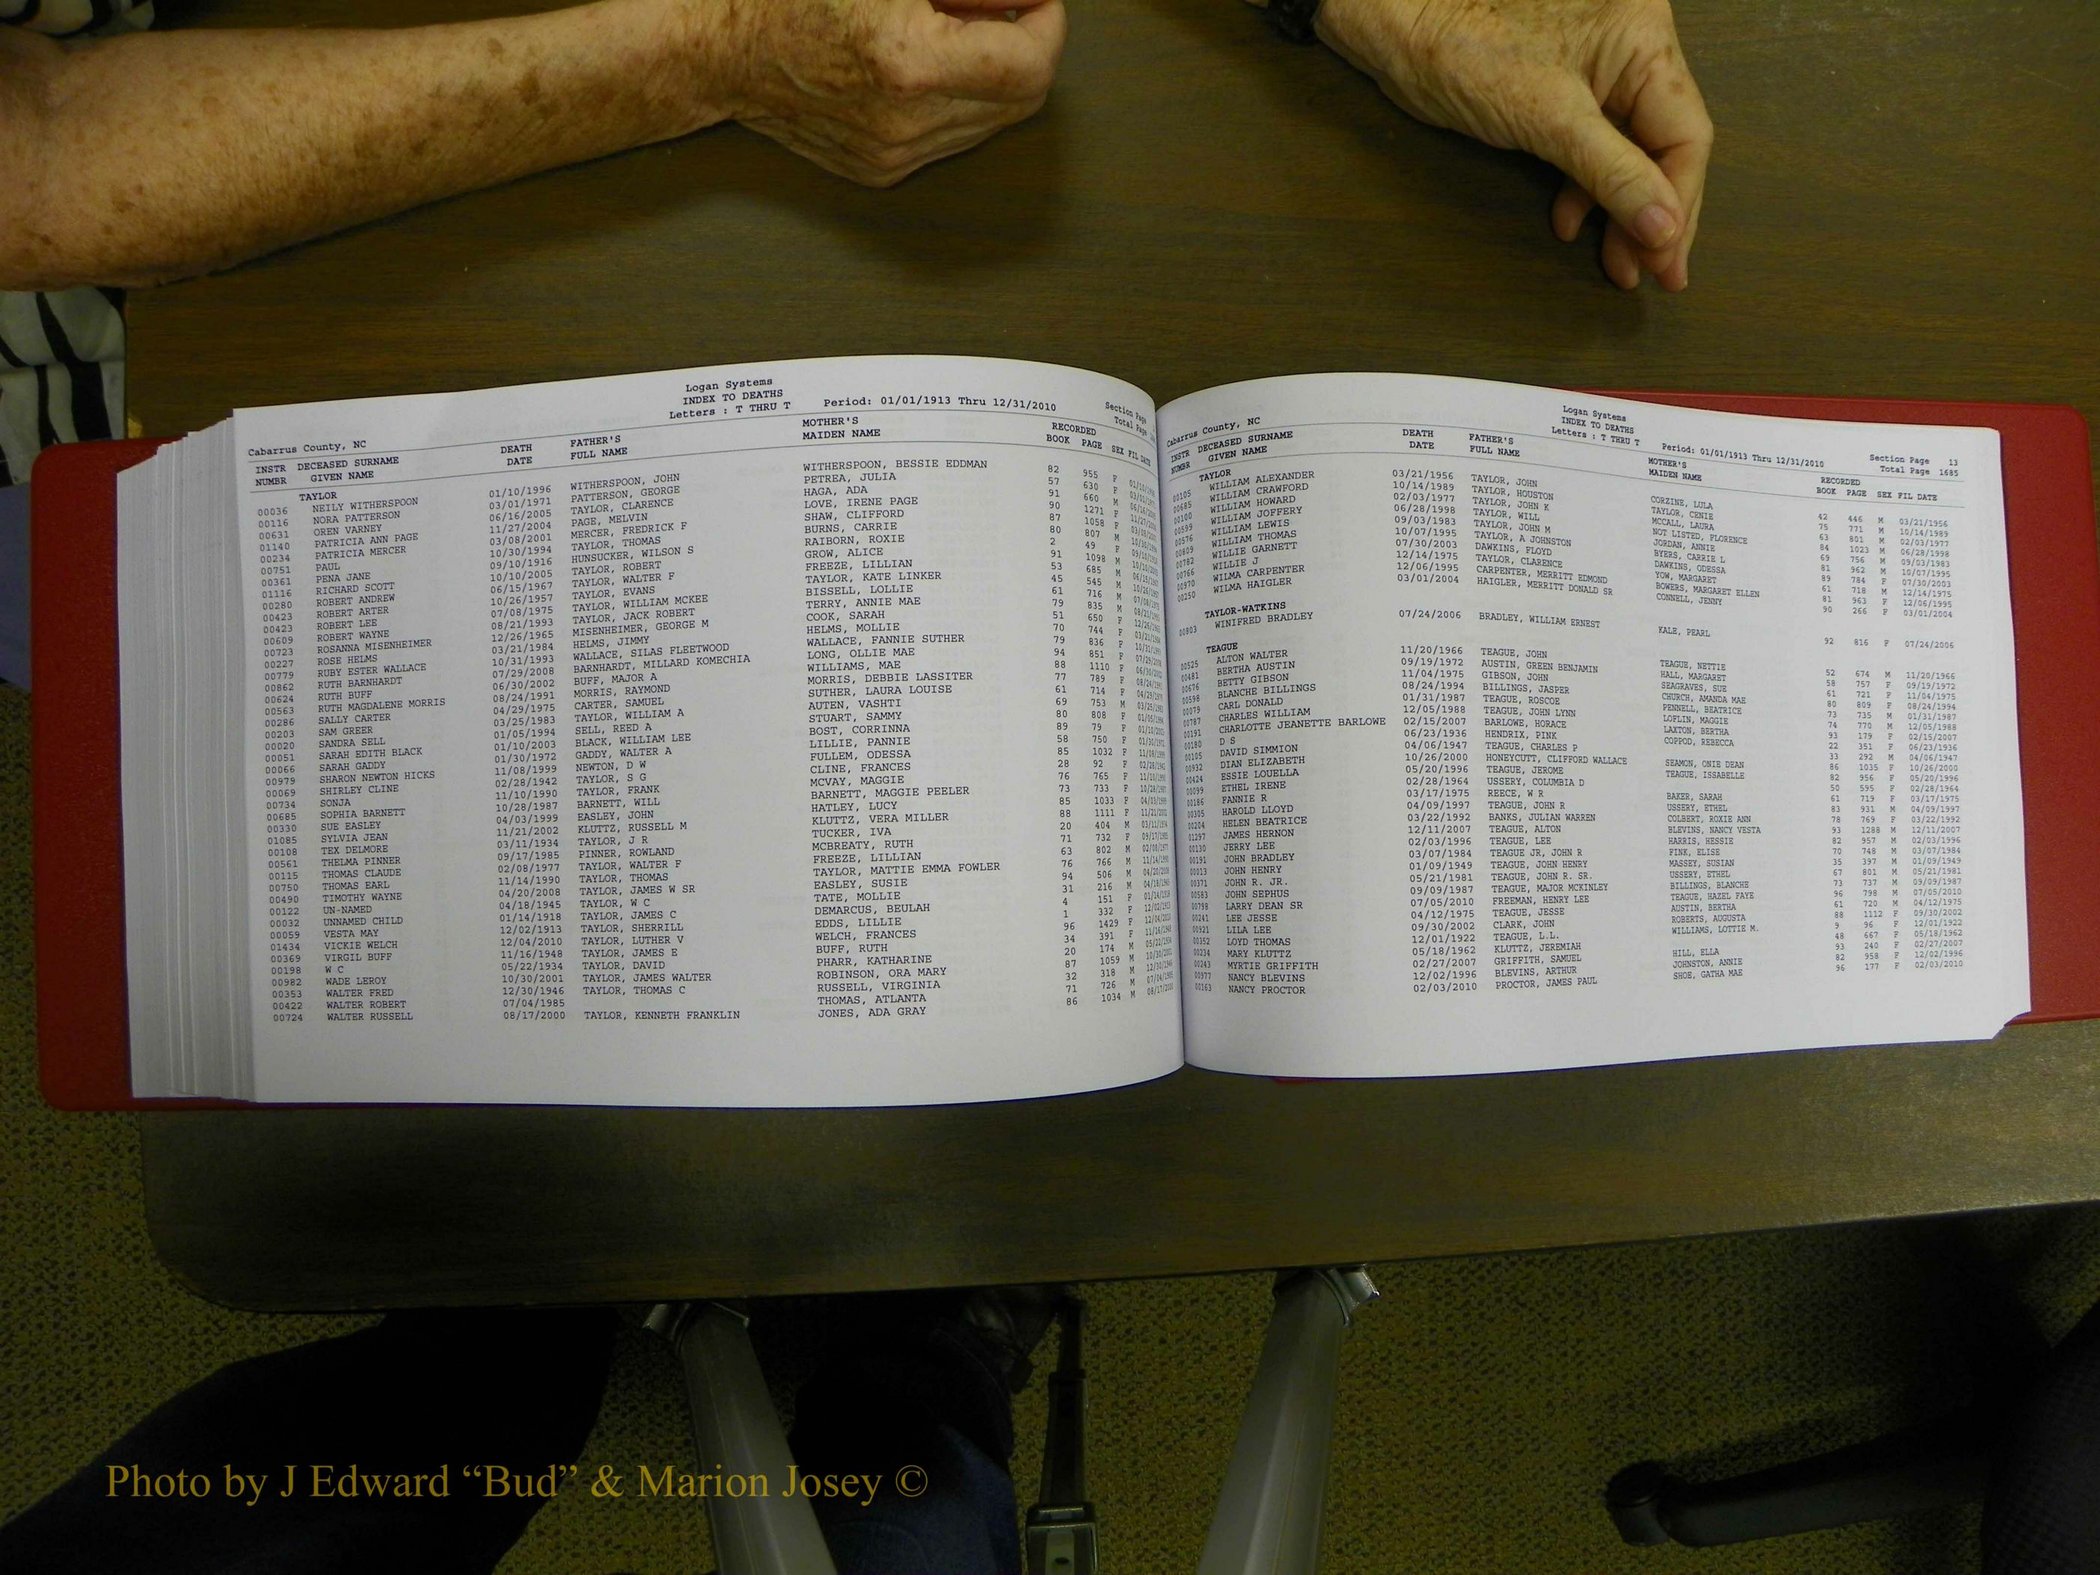 Logan Systems
INDEX TO DEATHS
Letters : T THRU T Period: 01/01/1913 Thru 12/31/2010
Section Page
Total Page
Cabarrus County, NC
INSTR DECEASED SURNAME DEATH FATHER'S MOTHER'S RECORDED
NUMBR GIVEN NAME DATE FULL NAME MAIDEN NAME BOOK PAGE SEX FIL DATE
TAYLOR
00036 NEILY WITHERSPOON 01/10/1996 WITHERSPOON, JOHN WITHERSPOON, BESSIE EDDMAN 82 955 F
00116 NORA PATTERSON 03/01/1971 PATTERSON, GEORGE PETREA, JULIA 57 630 F
00631 OREN VARNEY 06/16/2005 TAYLOR, CLARENCE HAGA, ADA 91 660 M
01140 PATRICIA ANN PAGE 11/27/2004 PAGE, MELVIN LOVE, IRENE PAGE 90 1271 F
00234 PATRICIA MERCER 03/08/2001 MERCER, FREDRICK F SHAW, CLIFFORD 87 1058 F
00751 PAUL 10/30/1994 TAYLOR, THOMAS BURNS, CARRIE 80 807 M
00361 PENA JANE 09/10/1916 HUNSUCKER, WILSON S RAIBORN, ROXIE 2 49 F
01116 RICHARD SCOTT 10/10/2005 TAYLOR, ROBERT GROW, ALICE 91 1098 M
00280 ROBERT ANDREW 06/15/1967 TAYLOR, WALTER F FREEZE, LILLIAN 53 685 M
00423 ROBERT ARTER 10/26/1957 TAYLOR, EVANS TAYLOR, KATE LINKER 45 545 M
00423 ROBERT LEE 07/08/1975 TAYLOR, WILLIAM MCKEE BISSELL, LOLLIE 61 716 M
00609 ROBERT WAYNE 08/21/1993 TAYLOR, JACK ROBERT TERRY, ANNIE MAE 79 835 M
00723 ROSANNA MISENHEIMER 12/26/1965 MISENHEIMER, GEORGE M COOK, SARAH 51 650 F
00227 ROSE HELMS 03/21/1984 HELMS, JIMMY HELMS, MOLLIE 70 744 F
00779 RUBY ESTER WALLACE 10/31/1993 WALLACE, SILAS FLEETWOOD WALLACE, FANNIE SUTHER 79 836 F
00862 RUTH BARNHARDT 07/29/2008 BARNHARDT, MILLARD KOMECHIA LONG, OLLIE MAE 94 851 F
00624 RUTH BUFF 06/30/2002 BUFF, MAJOR A WILLIAMS, MAE 88 1110 F
00563 RUTH MAGDALENE MORRIS 08/24/1991 MORRIS, RAYMOND MORRIS, DEBBIE LASSITER 77 789 F
00286 SALLY CARTER 04/29/1975 CARTER, SAMUEL SUTHER, LAURA LOUISE 61 714 F
00203 SAM GREER 03/25/1983 TAYLOR, WILLIAM A AUTEN, VASHTI 69 753 M
00020 SANDRA SELL 01/05/1994 SELL, REED A STUART, SAMMY 80 808 F
00051 SARAH EDITH BLACK 01/10/2003 BLACK, WILLIAM LEE BOST, CORRINNA 89 79 F
00066 SARAH GADDY 01/30/1972 GADDY, WALTER A LILLIE, PANNIE 58 750 F
00979 SHARON NEWTON HICKS 11/08/1999 NEWTON, D W FULLEM, ODESSA 85 1032 F
00069 SHIRLEY CLINE 02/28/1942 TAYLOR, S G CLINE, FRANCES 28 92 F
00734 SONJA 11/10/1990 TAYLOR, FRANK MCVAY, MAGGIE 76 765 F
00685 SOPHIA BARNETT 10/28/1987 BARNETT, WILL BARNETT, MAGGIE PEELER 73 733 F
00330 SUE EASLEY 04/03/1999 EASLEY, JOHN HATLEY, LUCY 85 1033 F
01085 SYLVIA JEAN 11/21/2002 KLUTTZ, RUSSELL M KLUTTZ, VERA MILLER 88 1111 F
00108 TEX DELMORE 03/11/1934 TAYLOR, J R TUCKER, IVA 20 404 M
00561 THELMA PINNER 09/17/1985 PINNER, ROWLAND MCBREATY, RUTH 71 732 F
00115 THOMAS CLAUDE 02/08/1977 TAYLOR, WALTER F FREEZE, LILLIAN 63 802 M
00750 THOMAS EARL 11/14/1990 TAYLOR, THOMAS TAYLOR, MATTIE EMMA FOWLER 76 766 M
00490 TIMOTHY WAYNE 04/20/2008 TAYLOR, JAMES W SR EASLEY, SUSIE 94 506 M
00122 UN-NAMED 04/18/1945 TAYLOR, W C TATE, MOLLIE 31 216 M
00032 UNNAMED CHILD 01/14/1918 TAYLOR, JAMES C DEMARCUS, BEULAH 4 151 F
00059 VESTA MAY 12/02/1913 TAYLOR, SHERRILL EDDS, LILLIE 1 332 F
01434 VICKIE WELCH 12/04/2010 TAYLOR, LUTHER V WELCH, FRANCES 96 1429 F
00369 VIRGIL BUFF 11/16/1948 TAYLOR, JAMES E BUFF, RUTH 34 391 F
00198 W C 05/22/1934 TAYLOR, DAVID PHARR, KATHARINE 20 174 M
00982 WADE LEROY 10/30/2001 TAYLOR, JAMES WALTER ROBINSON, ORA MARY 87 1059 M
00353 WALTER FRED 12/30/1946 TAYLOR, THOMAS C RUSSELL, VIRGINIA 32 318 M
00422 WALTER ROBERT 07/04/1985 THOMAS, ATLANTA 71 726 M
00724 WALTER RUSSELL 08/17/2000 TAYLOR, KENNETH FRANKLIN JONES, ADA GRAY 86 1034 M
Logan Systems
INDEX TO DEATHS
Letters : T THRU T Period: 01/01/1913 Thru 12/31/2010
Section Page 13
Total Page 1685
Cabarrus County, NC
INSTR DECEASED SURNAME DEATH FATHER'S MOTHER'S RECORDED
NUMBR GIVEN NAME DATE FULL NAME MAIDEN NAME BOOK PAGE SEX FIL DATE
TAYLOR
00105 WILLIAM ALEXANDER 03/21/1956 TAYLOR, JOHN CORZINE, LULA 42 446 M 03/21/1956
00685 WILLIAM CRAWFORD 10/14/1989 TAYLOR, HOUSTON TAYLOR, CENIE 75 771 M 10/14/1989
00100 WILLIAM HOWARD 02/03/1977 TAYLOR, JOHN K MCCALL, LAURA 63 801 M 02/03/1977
00599 WILLIAM JOFFERY 06/28/1998 TAYLOR, WILL NOT LISTED, FLORENCE 84 1023 M 06/28/1998
00576 WILLIAM LEWIS 09/03/1983 TAYLOR, JOHN M JORDAN, ANNIE 69 756 M 09/03/1983
00809 WILLIAM THOMAS 10/07/1995 TAYLOR, A JOHNSTON BYERS, CARRIE L 81 962 M 10/07/1995
00782 WILLIE GARNETT 07/30/2003 DAWKINS, FLOYD DAWKINS, ODESSA 89 784 F 07/30/2003
00766 WILLIE J 12/14/1975 TAYLOR, CLARENCE YOW, MARGARET 61 718 M 12/14/1975
00970 WILMA CARPENTER 12/06/1995 CARPENTER, MERRITT EDMOND BOWERS, MARGARET ELLEN 81 963 F 12/06/1995
00250 WILMA HAIGLER 03/01/2004 HAIGLER, MERRITT DONALD SR CONNELL, JENNY 90 266 F 03/01/2004
TAYLOR-WATKINS
00803 WINIFRED BRADLEY 07/24/2006 BRADLEY, WILLIAM ERNEST KALE, PEARL 92 816 F 07/24/2006
TEAGUE
00525 ALTON WALTER 11/20/1966 TEAGUE, JOHN TEAGUE, NETTIE 52 674 M 11/20/1966
00481 BERTHA AUSTIN 09/19/1972 AUSTIN, GREEN BENJAMIN HALL, MARGARET 58 757 F 09/19/1972
00676 BETTY GIBSON 11/04/1975 GIBSON, JOHN SEAGRAVES, SUE 61 721 F 11/04/1975
00598 BLANCHE BILLINGS 08/24/1994 BILLINGS, JASPER CHURCH, AMANDA MAE 80 809 F 08/24/1994
00079 CARL DONALD 01/31/1987 TEAGUE, ROSCOE PENNELL, BEATRICE 73 735 M 01/31/1987
00787 CHARLES WILLIAM 12/05/1988 TEAGUE, JOHN LYNN LOFLIN, MAGGIE 74 770 M 12/05/1988
00191 CHARLOTTE JEANETTE BARLOWE 02/15/2007 BARLOWE, HORACE LAXTON, BERTHA 93 179 F 02/15/2007
00180 D S 06/23/1936 HENDRIX, PINK COPPOD, REBECCA 22 351 F 06/23/1936
00105 DAVID SIMMION 04/06/1947 TEAGUE, CHARLES P 33 292 M 04/06/1947
00932 DIAN ELIZABETH 10/26/2000 HONEYCUTT, CLIFFORD WALLACE SEAMON, ONIE DEAN 86 1035 F 10/26/2000
00424 ESSIE LOUELLA 05/20/1996 TEAGUE, JEROME TEAGUE, ISSABELLE 82 956 F 05/20/1996
00099 ETHEL IRENE 02/28/1964 USSERY, COLUMBIA D 50 595 F 02/28/1964
00186 FANNIE R 03/17/1975 REECE, W R BAKER, SARAH 61 719 F 03/17/1975
00305 HAROLD LLOYD 04/09/1997 TEAGUE, JOHN R USSERY, ETHEL 83 931 M 04/09/1997
00204 HELEN BEATRICE 03/22/1992 BANKS, JULIAN WARREN COLBERT, ROXIE ANN 78 769 F 03/22/1992
01297 JAMES HERNON 12/11/2007 TEAGUE, ALTON BLEVINS, NANCY VESTA 93 1288 M 12/11/2007
00130 JERRY LEE 02/03/1996 TEAGUE, LEE HARRIS, HESSIE 82 957 M 02/03/1996
00191 JOHN BRADLEY 03/07/1984 TEAGUE JR, JOHN R FINK, ELISE 70 748 M 03/07/1984
00013 JOHN HENRY 01/09/1949 TEAGUE, JOHN HENRY MASSEY, SUSIAN 35 397 M 01/09/1949
00371 JOHN R. JR. 05/21/1981 TEAGUE, JOHN R. SR. USSERY, ETHEL 67 801 M 05/21/1981
00583 JOHN SEPHUS 09/09/1987 TEAGUE, MAJOR MCKINLEY BILLINGS, BLANCHE 73 737 M 09/09/1987
00798 LARRY DEAN SR 07/05/2010 FREEMAN, HENRY LEE TEAGUE, HAZEL FAYE 96 798 M 07/05/2010
00241 LEE JESSE 04/12/1975 TEAGUE, JESSE AUSTIN, BERTHA 61 720 M 04/12/1975
00921 LILA LEE 09/30/2002 CLARK, JOHN ROBERTS, AUGUSTA 88 1112 F 09/30/2002
00352 LOYD THOMAS 12/01/1922 TEAGUE, L.L. WILLIAMS, LOTTIE M. 9 96 F 12/01/1922
00234 MARY KLUTTZ 05/18/1962 KLUTTZ, JEREMIAH 48 667 F 05/18/1962
00243 MYRTIE GRIFFITH 02/27/2007 GRIFFITH, SAMUEL HILL, ELLA 93 240 F 02/27/2007
00977 NANCY BLEVINS 12/02/1996 BLEVINS, ARTHUR JOHNSTON, ANNIE 82 958 F 12/02/1996
00163 NANCY PROCTOR 02/03/2010 PROCTOR, JAMES PAUL SHOE, GATHA MAE 96 177 F 02/03/2010
Photo by J Edward “Bud” & Marion Josey ©